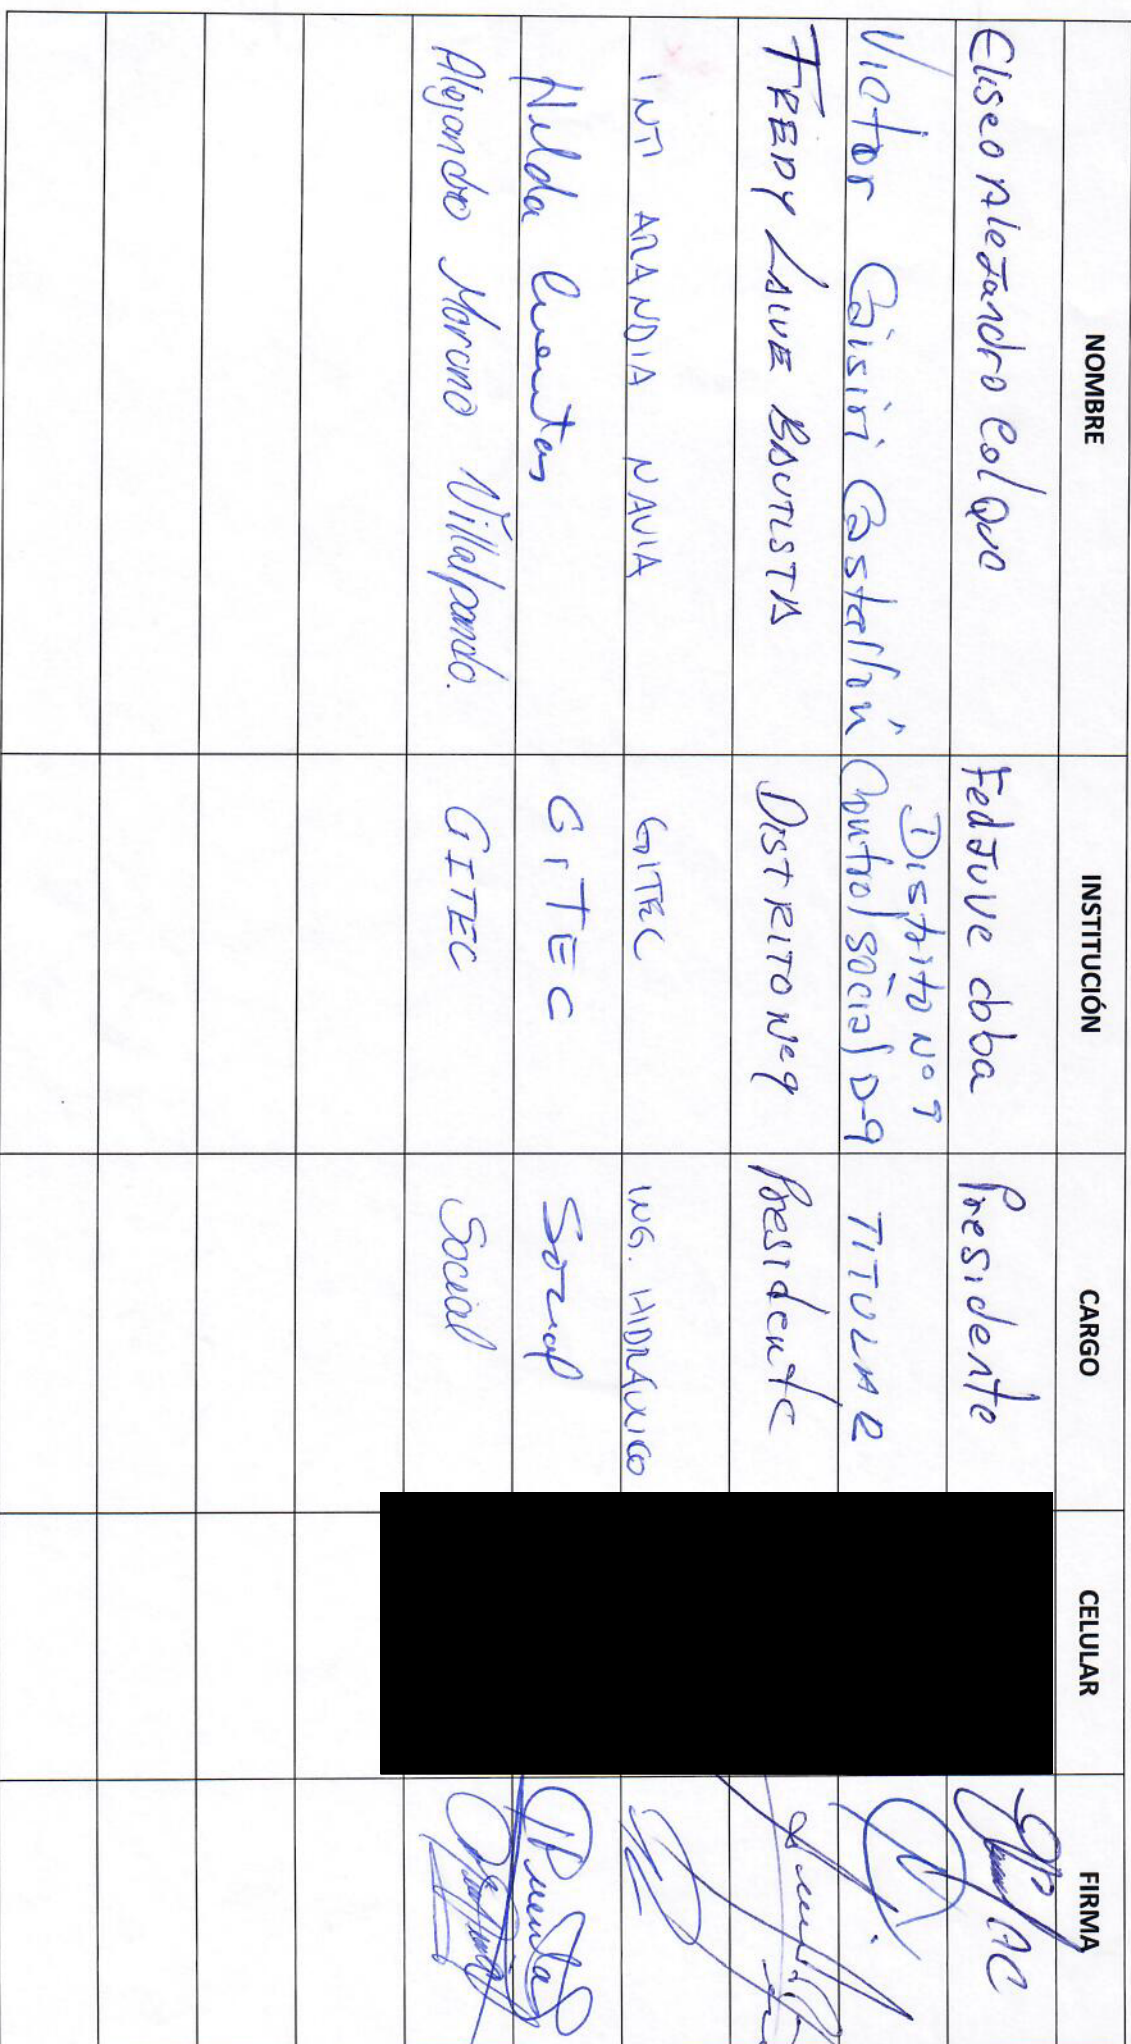 NOMBRE INSTITUCIÓN CARGO CELULAR FIRMA
Eliseo AleJandro ColQue FedJuve cbba Presidente
Distrito Nº 9
Victor Caisiri Castellón Control social D-9 TITULAR
FREDY LAIVE BAUTISTA DISTRITO Nº 9 Presidente
INTI ARANDIA NAVIA GITEC ING. HIDRÁULICO
Hilda Cuentas GITEC Social
Alejandro Morano Villalpando. GITEC Social